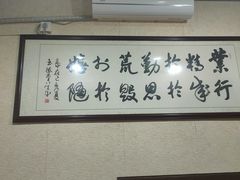 業精於勤荒於嬉
行成於思毀於隨